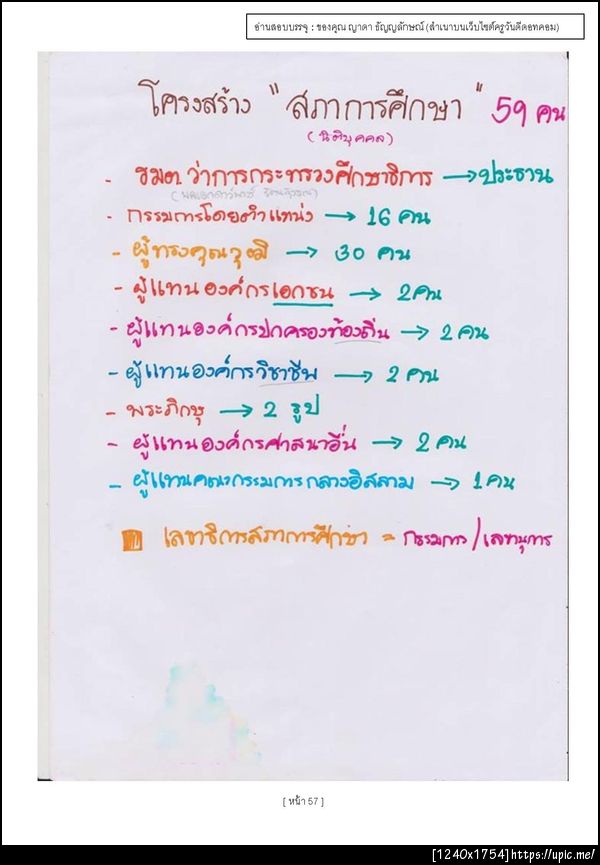 อ่านสอบบรรจุ : ของคุณ ญาดา ธัญญลักษณ์ (สำเนาบนเว็บไซต์ครูวันดีดอทคอม)
โครงสร้าง "สภาการศึกษา" 59 คน
(นิติบุคคล)
- รมต. ว่าการกระทรวงศึกษาธิการ → ประธาน
- กรรมการโดยตำแหน่ง → 16 คน
- ผู้ทรงคุณวุฒิ → 30 คน
- ผู้แทนองค์กรเอกชน → 2 คน
- ผู้แทนองค์กรปกครองท้องถิ่น → 2 คน
- ผู้แทนองค์กรวิชาชีพ → 2 คน
- พระภิกษุ → 2 รูป
- ผู้แทนองค์กรศาสนาอื่น → 2 คน
- ผู้แทนคณะกรรมการกลางอิสลาม → 1 คน
เลขาธิการสภาการศึกษา = กรรมการ/เลขานุการ
[ หน้า 57 ]
[1240x1754]https://upic.me/